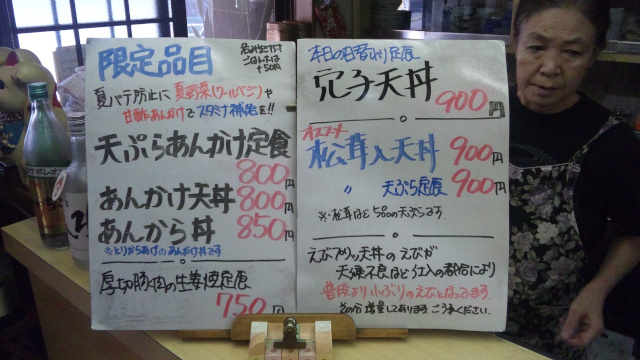 限定品目
夏バテ防止に夏野菜(クールベジ)や
甘酢あんかけでスタミナ補給を!!
天ぷらあんかけ定食
800円
あんかけ天丼 800円
あんから丼 850円
※とりからあげのあんかけ丼です
厚切豚肉の生姜焼定食
750円
本日の日替り定食
穴子天丼
900円
オススメ
松茸入天丼 900円
〃 天ぷら定食 900円
※松茸ほど5品の天ぷらです
えびプリッ天丼のえびが
天候不良など仕入の都合により
普段より小ぶりのえびとなってます
その分増量してあります ご了承ください.